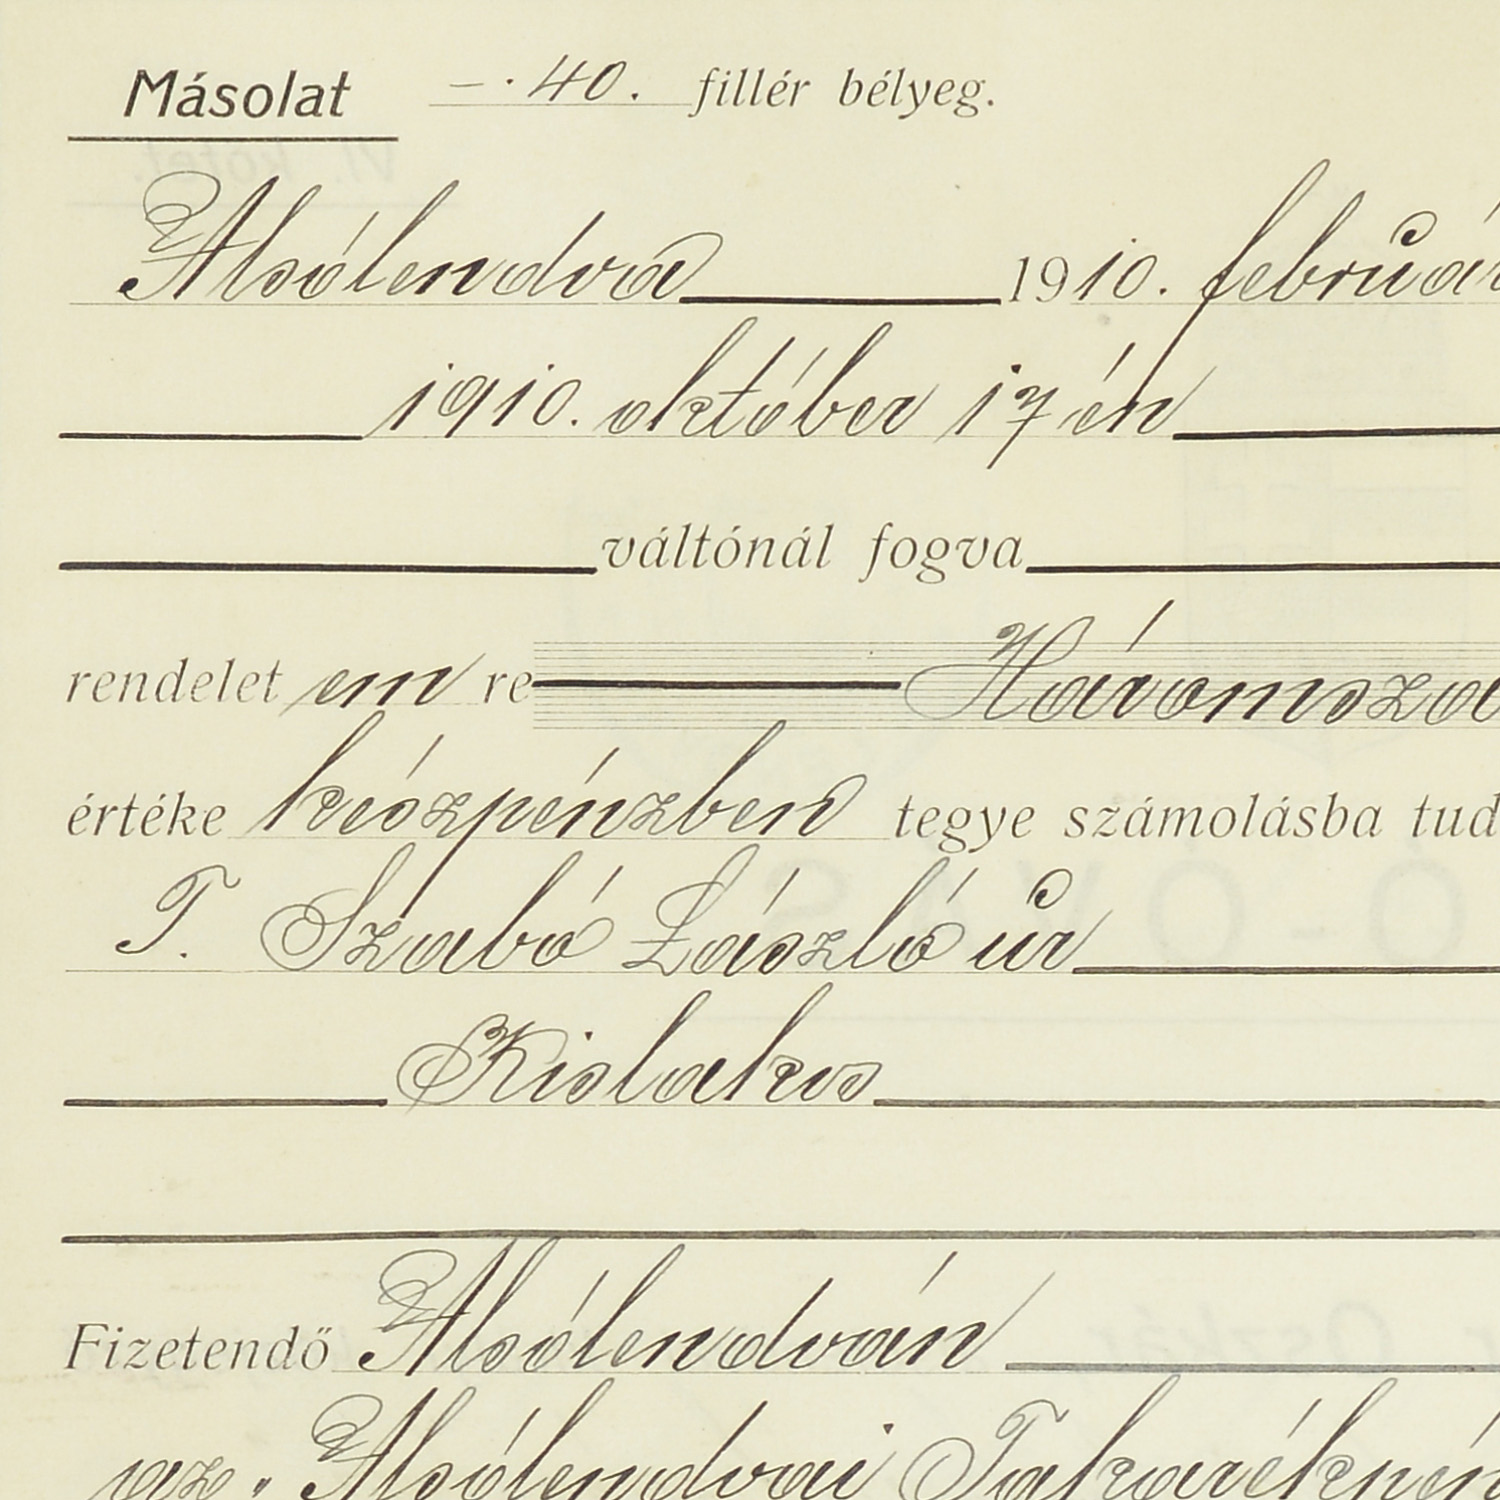 Másolat —.40. fillér bélyeg.
Alsólendva 1910. február
1910. október 17én
váltónál fogva
rendelet em re Háromszá
értéke készpénzben tegye számolásba tud
T. Szabó László úr
Kislakos
Fizetendő Alsólendván
az. Alsólendvai Takarékpén